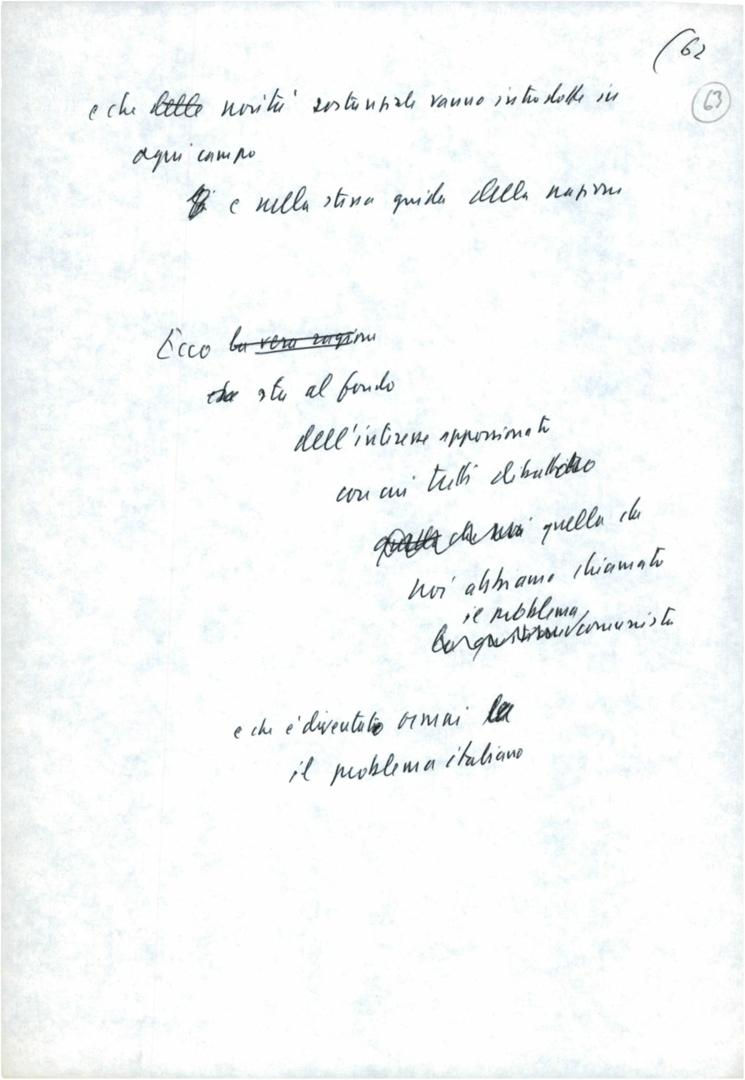 (62
63
e che delle novità sostanziale vanno introdotte in
ogni campo
e nella stessa guida della nazione
Ecco la vera ragione
che sta al fondo
dell'interesse appassionato
con cui tutti dibattono
quella che
noi abbiamo chiamato
il problema
la questione comunista
e che è diventato ormai la
il problema italiano